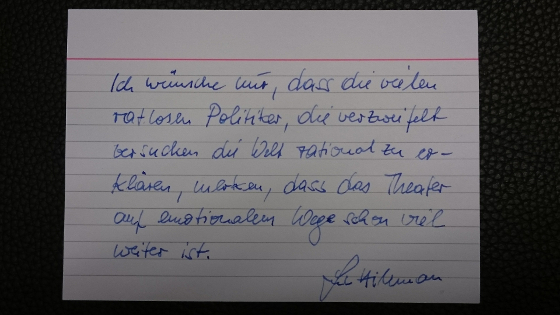 Ich wünsche mir, dass die vielen
ratlosen Politiker, die verzweifelt
versuchen die Welt rational zu er-
klären, merken, dass das Theater
auf emotionalem Wege schon viel
weiter ist.